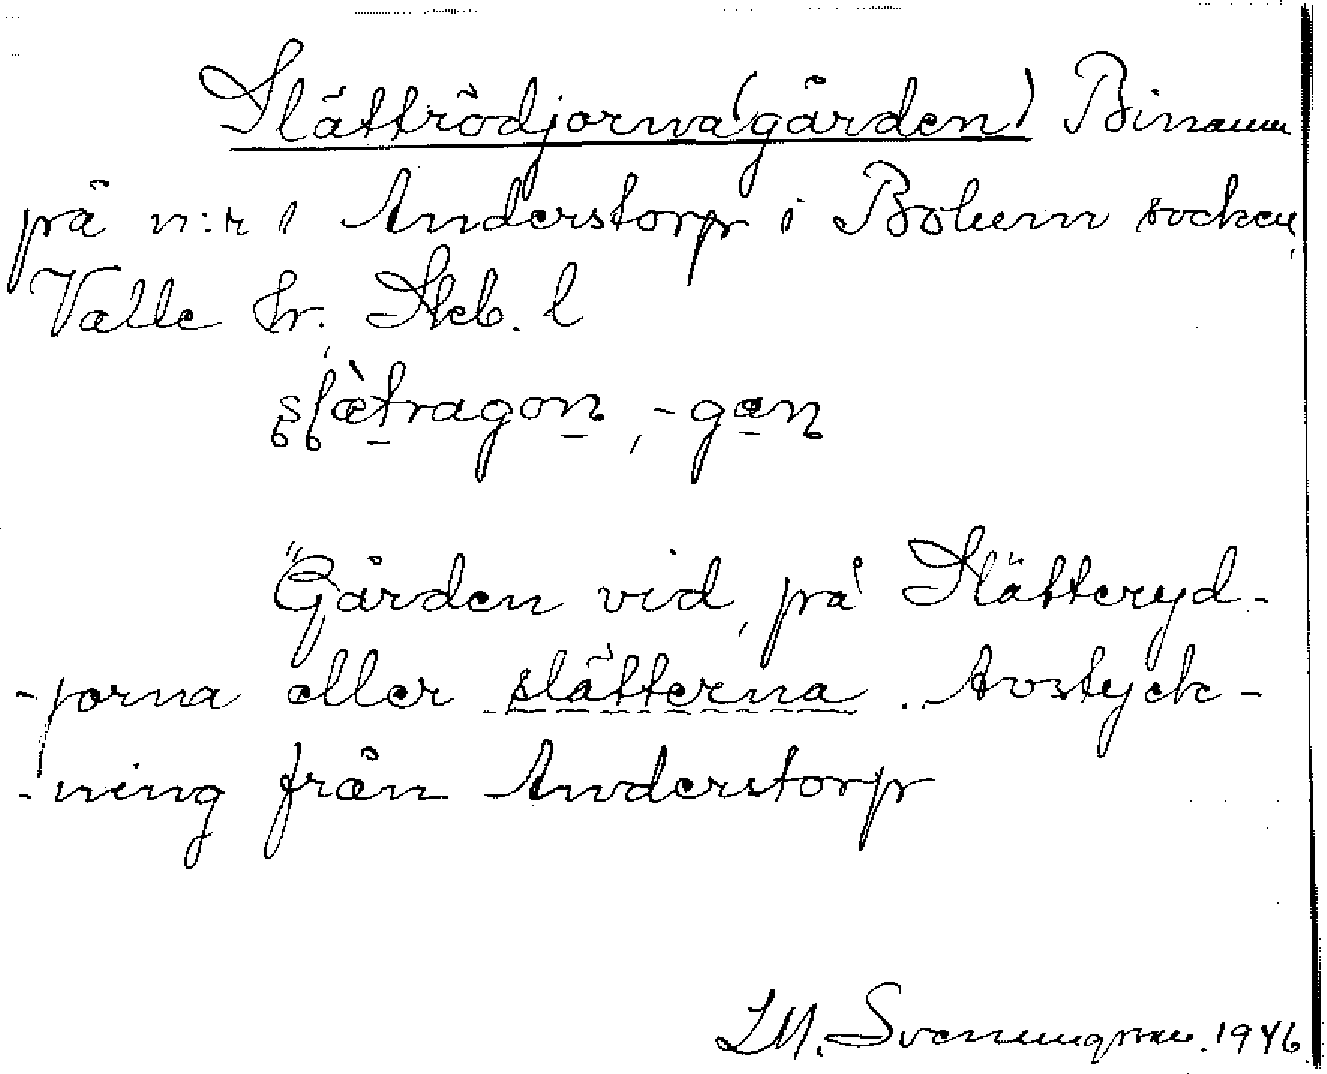 Slättrödjorna(gården) Binamn
på n:r 1 Anderstorp i Bolum socken,
Valle hr. Skb. l
slätragon, -gan
"Gården vid, på Slätteryd-
-jorna eller slätterna. Avstyck-
-ning från Anderstorp
Svenungsson. 1946